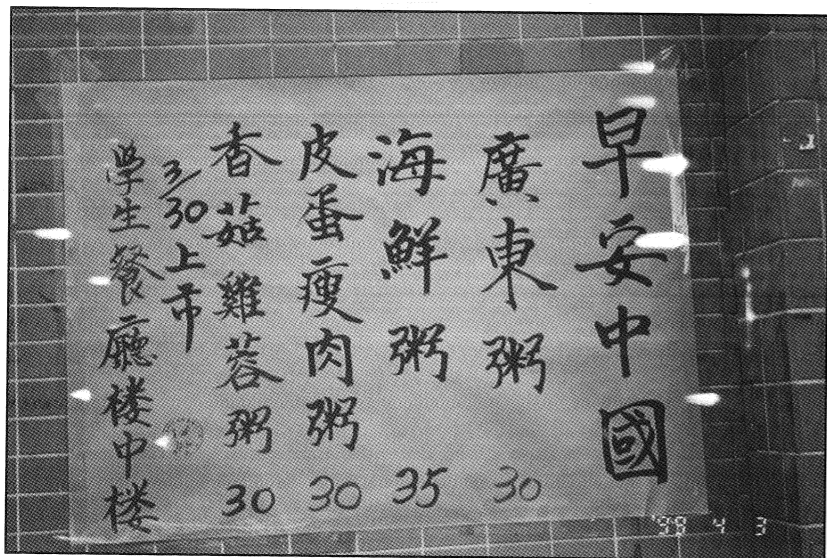 早安中國
廣東粥 30
海鮮粥 35
皮蛋瘦肉粥 30
香菇雞蓉粥 30
3/30上市
學生餐廳楼中楼
'99 4 3